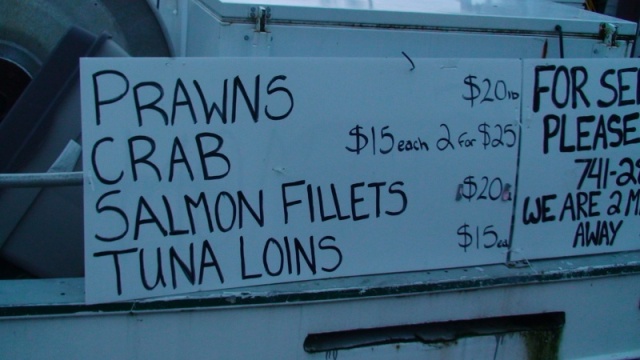 PRAWNS $20 lb
CRAB $15 each 2 for $25
SALMON FILLETS $20
TUNA LOINS $15 ea
FOR
PLEASE
741-2
WE ARE 2
AWAY